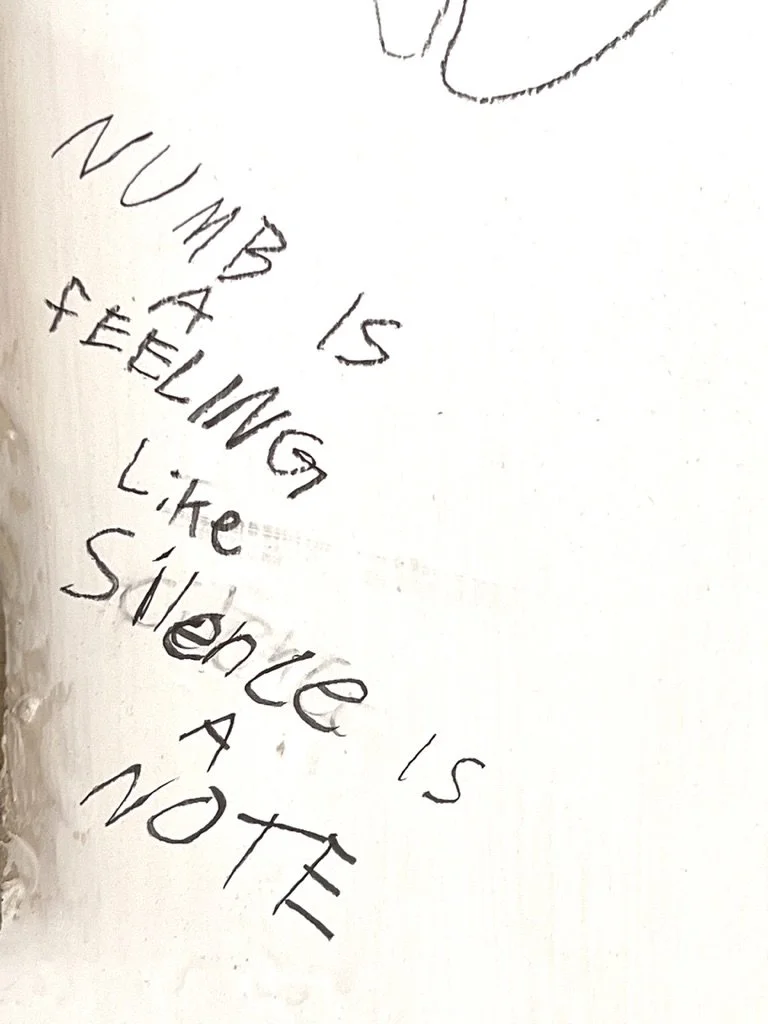 NUMB IS
A
fEELING
Like
Silence is
A
NOTE